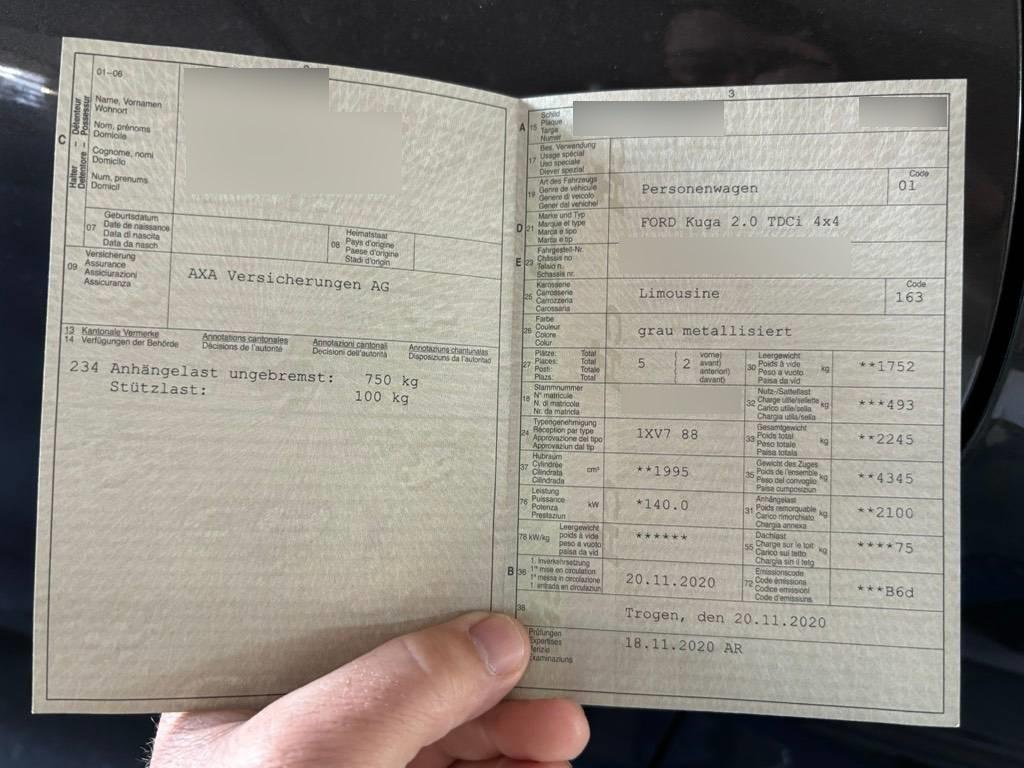 01-06
Name, Vornamen
Wohnort
Nom, prénoms
Domicile
Cognome, nomi
Domicilo
Num, prenums
Domicil
C
Halter – Détenteur
Detentore – Possessur
07
Geburtsdatum
Date de naissance
Data di nascita
Data da nasch
08
Heimatstaat
Pays d'origine
Paese d'origine
Stadi d'origin
09
Versicherung
Assurance
Assicurazioni
Assicuranza
AXA Versicherungen AG
13 Kantonale Vermerke Annotations cantonales Annotazioni cantonali Annotaziuns chantunalas
14 Verfügungen der Behörde Décisions de l'autorité Decisioni dell'autorità Disposiziuns da l'autoritad
234 Anhängelast ungebremst: 750 kg
Stützlast: 100 kg
3
A 15
Schild
Plaque
Targa
Numer
17
Bes. Verwendung
Usage spécial
Uso speciale
Diever spezial
19
Art des Fahrzeugs
Genre de véhicule
Genere di veicolo
Gener dal vehichel
Personenwagen
Code
01
D 21
Marke und Typ
Marque et type
Marca e tipo
Marca e tip
FORD Kuga 2.0 TDCi 4x4
E 23
Fahrgestell-Nr.
Châssis no
Telaio n.
Schassis nr.
25
Karosserie
Carrosserie
Carrozzeria
Carossaria
Limousine
Code
163
26
Farbe
Couleur
Colore
Colur
grau metallisiert
27
Plätze: Total
Places: Total
Posti: Totale
Plazs: Total
5 { 2
vorne)
avant)
anteriori)
davant)
30
Leergewicht
Poids à vide kg
Peso a vuoto
Paisa da vid
**1752
18
Stammnummer
N° matricule
N. di matricola
Nr. da matricla
32
Nutz-/Sattellast
Charge utile/sellette kg
Carico utile/sella
Chargia utila/sella
***493
24
Typengenehmigung
Réception par type
Approvazione del tipo
Approvaziun dal tip
1XV7 88
33
Gesamtgewicht
Poids total kg
Peso totale
Paisa totala
**2245
37
Hubraum
Cylindrée cm³
Cilindrata
Cilindrada
**1995
35
Gewicht des Zuges
Poids de l'ensemble kg
Peso del convoglio
Paisa cumposiziun
**4345
76
Leistung
Puissance kW
Potenza
Prestaziun
*140.0
31
Anhängelast
Poids remorquable kg
Carico rimorchiato
Chargia annexa
**2100
78 kW/kg
Leergewicht
poids à vide
peso a vuoto
paisa da vid
******
55
Dachlast
Charge sur le toit kg
Carico sul tetto
Chargia sin il tetg
****75
B 36
1. Inverkehrsetzung
1re mise en circulation
1a messa in circolazione
1. entrada en circulaziun
20.11.2020
72
Emissionscode
Code émissions
Codice emissioni
Code d'emissiuns
***B6d
38
Trogen, den 20.11.2020
Prüfungen
Expertises
18.11.2020 AR